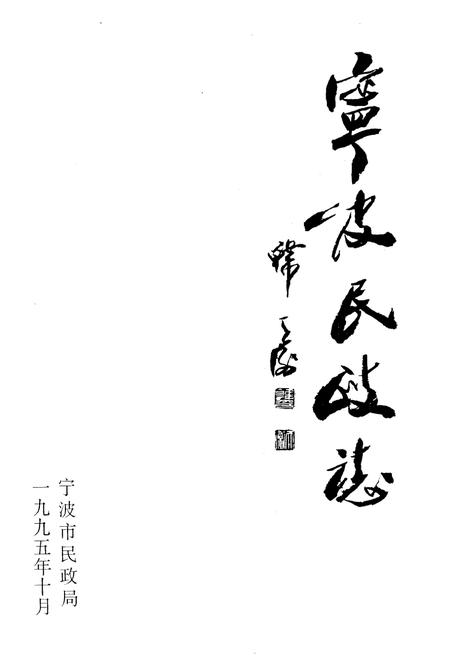 寧波民政誌
宁波市民政局
一九九五年十月